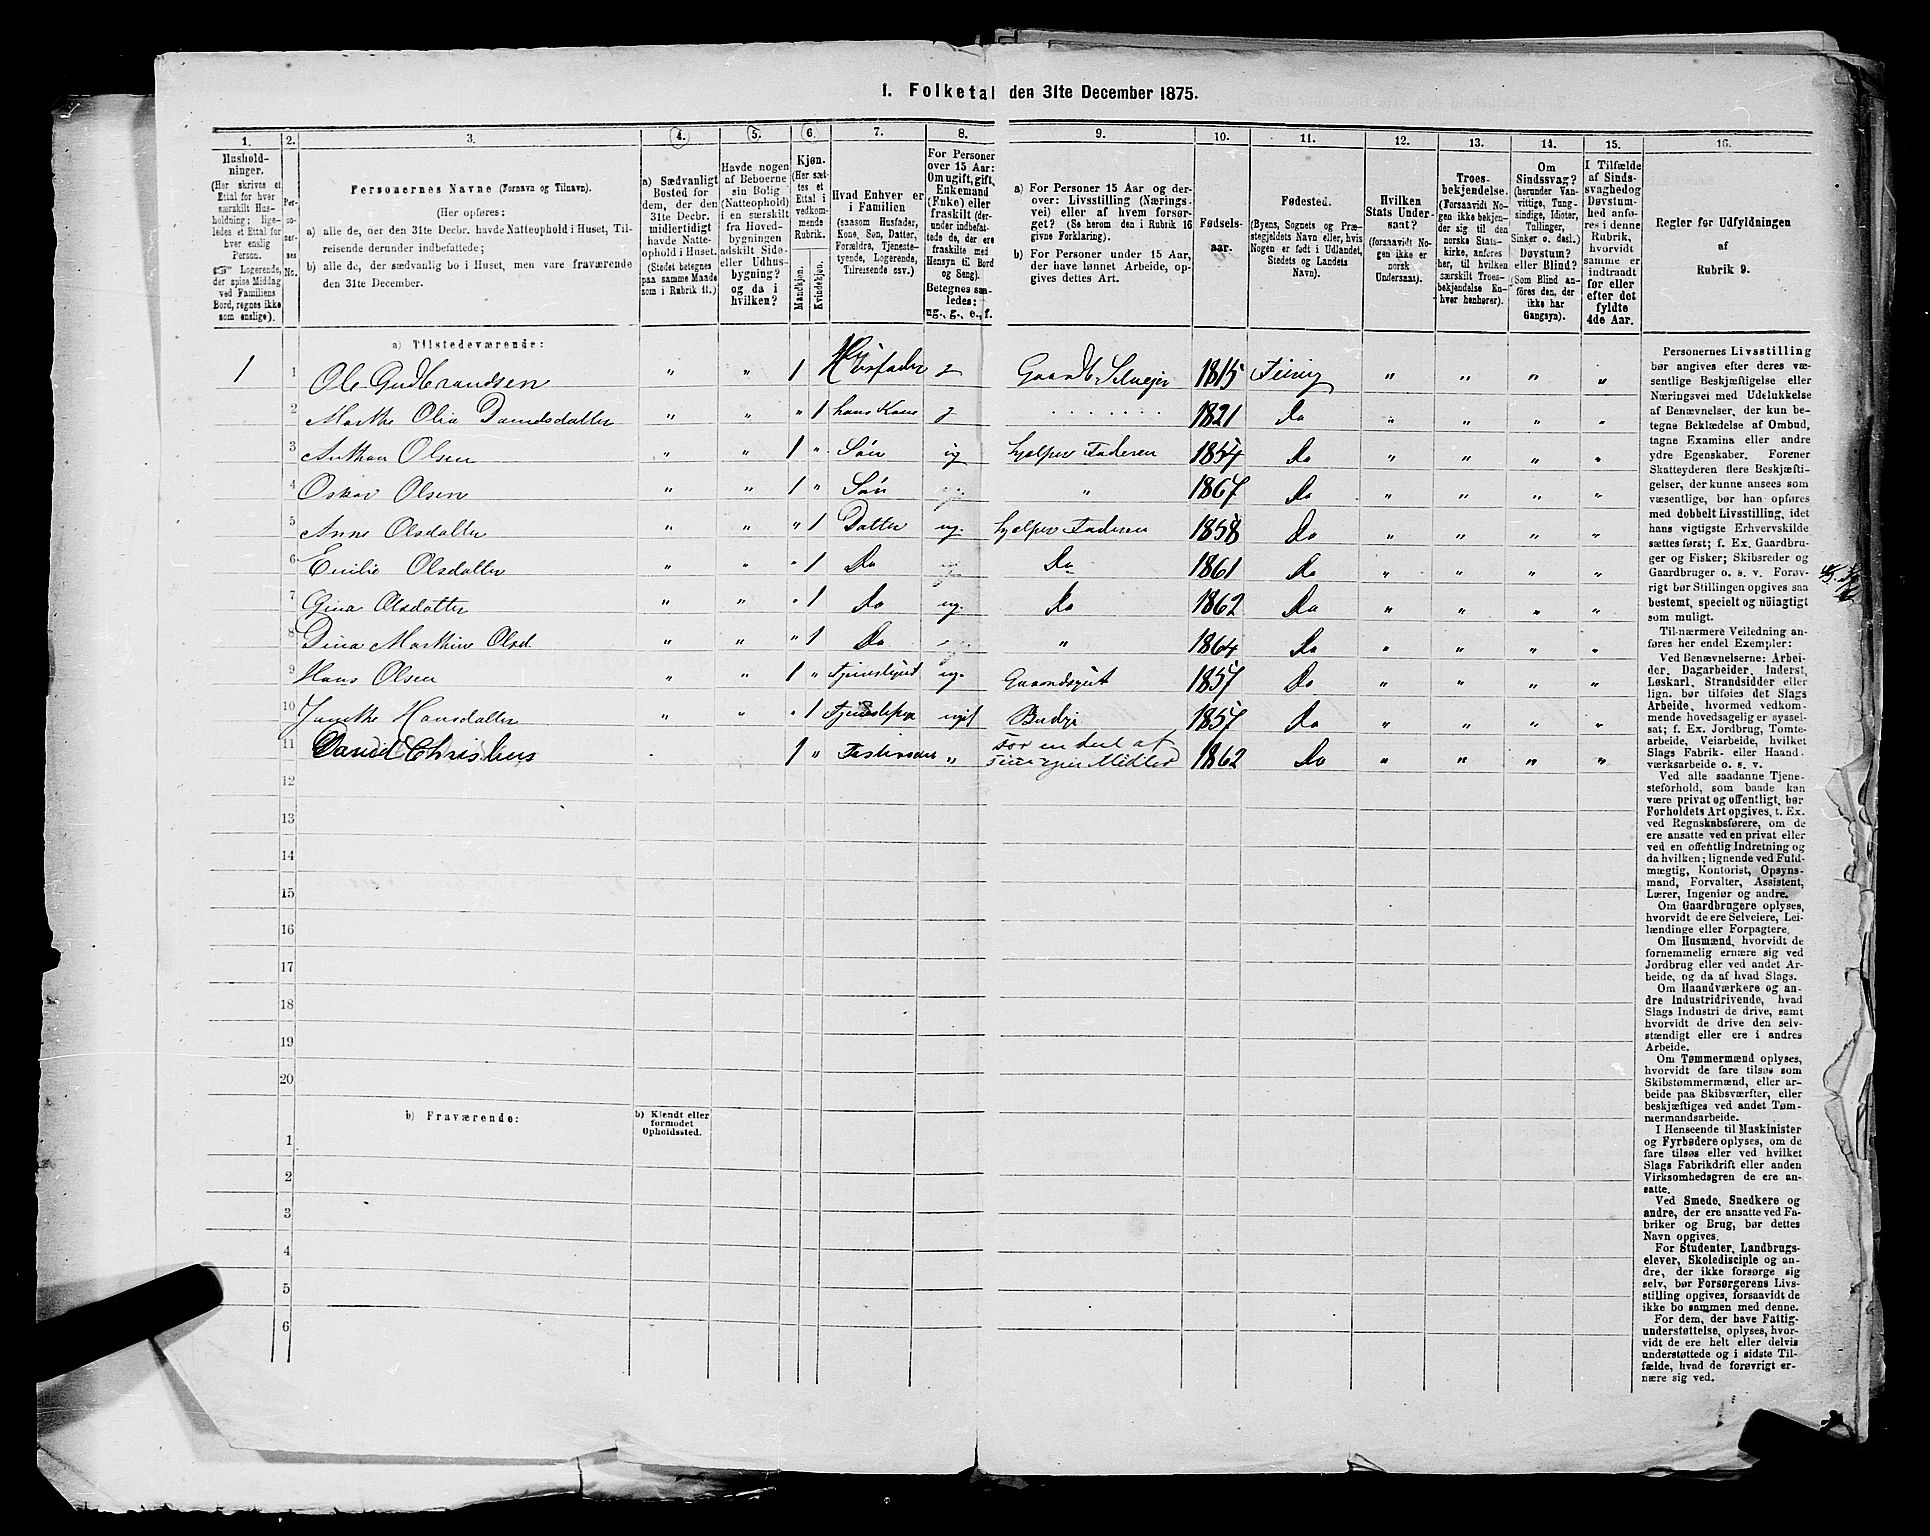 1. Folketal den 31te December 1875.
1. 2. 3. 4. 5. 6. 7. 8. 9. 10. 11. 12. 13. 14. 15. 16.
Husholdninger.
(Her skrives et
Ettal for hver
særskilt Husholdning; ligeledes et Ettal for
hver enslig
Person.
☞ Logerende,
der spise Middag
ved Familiens
Bord, regnes ikke
som enslige).
Personernes No.
Personernes Navne (Fornavn og Tilnavn).
(Her opføres:
a) alle de, der den 31te Decbr. havde Natteophold i Huset, Tilreisende derunder indbefattede;
b) alle de, der sædvanlig bo i Huset, men vare fraværende
den 31te December.
a) Sædvanligt
Bosted for
dem, der den
31te Decbr.
midlertidigt
havde Natteophold i Huset.
(Stedet betegnes
paa samme Maade
som i Rubrik 11.)
Havde nogen
af Beboerne
sin Bolig
(Natteophold)
i en særskilt
fra Hovedbygningen
adskilt Side-
eller Udhusbygning?
og da i
hvilken?
Kjøn.
(Her sættes et
Ettal i
vedkommende
Rubrik.
Mandkjøn.
Kvindekjøn.
Hvad Enhver er
i Familien
(saasom Husfader,
Kone, Søn, Datter,
Forældre, Tjenestetyende, Logerende,
Tilreisende osv.)
For Personer
over 15 Aar:
Om ugift, gift,
Enkemand
(Enke) eller
fraskilt (derunder indbefattede de, der ere
fraskilte med
Hensyn til Bord
og Seng).
Betegnes saaledes:
ug., g., e., f.
a) For Personer 15 Aar og derover: Livsstilling (Næringsvei) eller af hvem forsørget? (Se herom den i Rubrik 16
givne Forklaring).
b) For Personer under 15 Aar,
der have lønnet Arbeide, opgives dettes Art.
Fødselsaar.
Fødested.
(Byens, Sognets og Præstegjeldets Navn eller, hvis
Nogen er født i Udlandet,
Stedets og Landets
Navn).
Hvilken
Stats Undersaat?
(forsaavidt Nogen ikke er
norsk
Undersaat).
Troesbekjendelse.
(Forsaavidt Nogen ikke bekjender sig til den
norske Statskirke, anføres
her, til hvilken
særskilt Troesbekjendelse Enhver henhører).
Om
Sindssvag?
(herunder Vanvittige, Tungsindige, Idioter,
Tullinger,
Sinker o. desl.)
Døvstum?
eller Blind?
(Som Blind anføres den, der
ikke har
Gangsyn).
I Tilfælde
af Sindssvaghed og
Døvstumhed anføres i denne
Rubrik,
hvorvidt
samme er
indtraadt
før eller
efter det
fyldte
4de Aar.
Regler for Udfyldningen
af
Rubrik 9.
a) Tilstedeværende:
1 1 Ole Gudbrandsen " " 1 Husfader g Gaardb. Selveier 1815 Feiring " " " "
2 Marthe Olia Danielsdatter " " " 1 hans Kone g 1821 Do " " " "
3 Anthon Olsen " " 1 " Søn ug hjælper Faderen 1854 Do " " " "
4 Oskar Olsen " " 1 " Søn " 1867 Do " " " "
5 Anne Olsdatter " " " 1 Datter ug. hjælper Faderen 1858 Do " " " "
6 Emilie Olsdatter " " " 1 Do Do 1861 Do " " " "
7 Gina Olsdatter " " " 1 Do ug. Do 1862 Do " " " "
8 Dina Marthine Olsd " " " 1 Do " 1864 Do " " " "
9 Hans Olsen " " 1 " ug. Gaardsgut 1857 Do " " " "
10 Hansdatter " " " 1 ugift Budeie 1857 Do " " " "
11 Daniel Christians 1 " " For en del af
1862 Do " " " "
12
13
14
15
16
17
18
19
20
b) Fraværende:
b) Kjendt eller
formodet
Opholdssted.
1
2
3
4
5
6
Personernes Livsstilling
bør angives efter deres væsentlige Beskjæftigelse eller
Næringsvei med Udelukkelse
af Benævnelser, der kun betegne Beklædelse af Ombud,
tagne Examina eller andre
ydre Egenskaber. Forener
Skatteyderen flere Beskjæftigelser, der kunne ansees som
væsentlige, bør han opføres
med dobbelt Livsstilling, idet
hans vigtigste Erhvervskilde
sættes først; f. Ex. Gaardbruger og Fisker; Skibsreder og
Gaardbruger o. s. v. Forøvrigt bør Stillingen opgives saa
bestemt, specielt og nöiagtigt
som muligt.
Til nærmere Veiledning anføres her endel Exempler:
Ved Benævnelserne: Arbeider, Dagarbeider, Inderst,
Løskarl, Strandsidder eller
lign. bør tilføies det Slags
Arbeide, hvormed vedkommende hovedsagelig er sysselsat; f. Ex. Jordbrug, Tomtearbeide, Veiarbeide, hvilket
Slags Fabrik- eller Haandværksarbeide o. s. v.
Ved alle saadanne Tjenesteforhold, som baade kan
være privat og offentligt, bør
Forholdets Art opgives, t. Ex.
ved Regnskabsførere, om de
ere ansatte ved en privat eller
ved en offentlig Indretning og
da hvilken; lignende ved Fuldmægtig, Kontorist, Opsynsmand, Forvalter, Assistent,
Lærer, Ingeniør og andre.
Om Gaardbrugere oplyses,
hvorvidt de ere Selveiere, Leilændinge eller Forpagtere.
Om Husmænd, hvorvidt de
fornemmelig ernære sig ved
Jordbrug eller ved andet Arbeide, og da af hvad Slags.
Om Haandværkere og andre Industridrivende, hvad
Slags Industri de drive, samt
hvorvidt de drive den selvstændigt eller ere i andres
Arbeide.
Om Tømmermænd oplyses,
hvorvidt de fare tilsøs som
Skibstømmermænd, eller arbeide paa Skibsværfter, eller
beskjæftiges ved andet Tømmermandsarbeide.
I Henseende til Maskinister
og Fyrbødere oplyses, om de
fare tilsøs eller ved hvilket
Slags Fabrikdrift eller anden
Virksomhedsgren de ere ansatte.
Ved Smede, Snedkere og
andre, der ere ansatte ved Fabriker og Brug, bør dettes
Navn opgives.
For Studenter, Landbrugselever, Skoledisciple og andre, der ikke forsørge sig
selv, bør Forsørgerens Livsstilling opgives, forsaavidt de
ikke bo sammen med denne.
For dem, der have Fattigunderstøttelse, oplyses, hvorvidt de ere helt eller delvis
understøttede og i sidste Tilfælde, hvad de forøvrigt ernære sig ved.